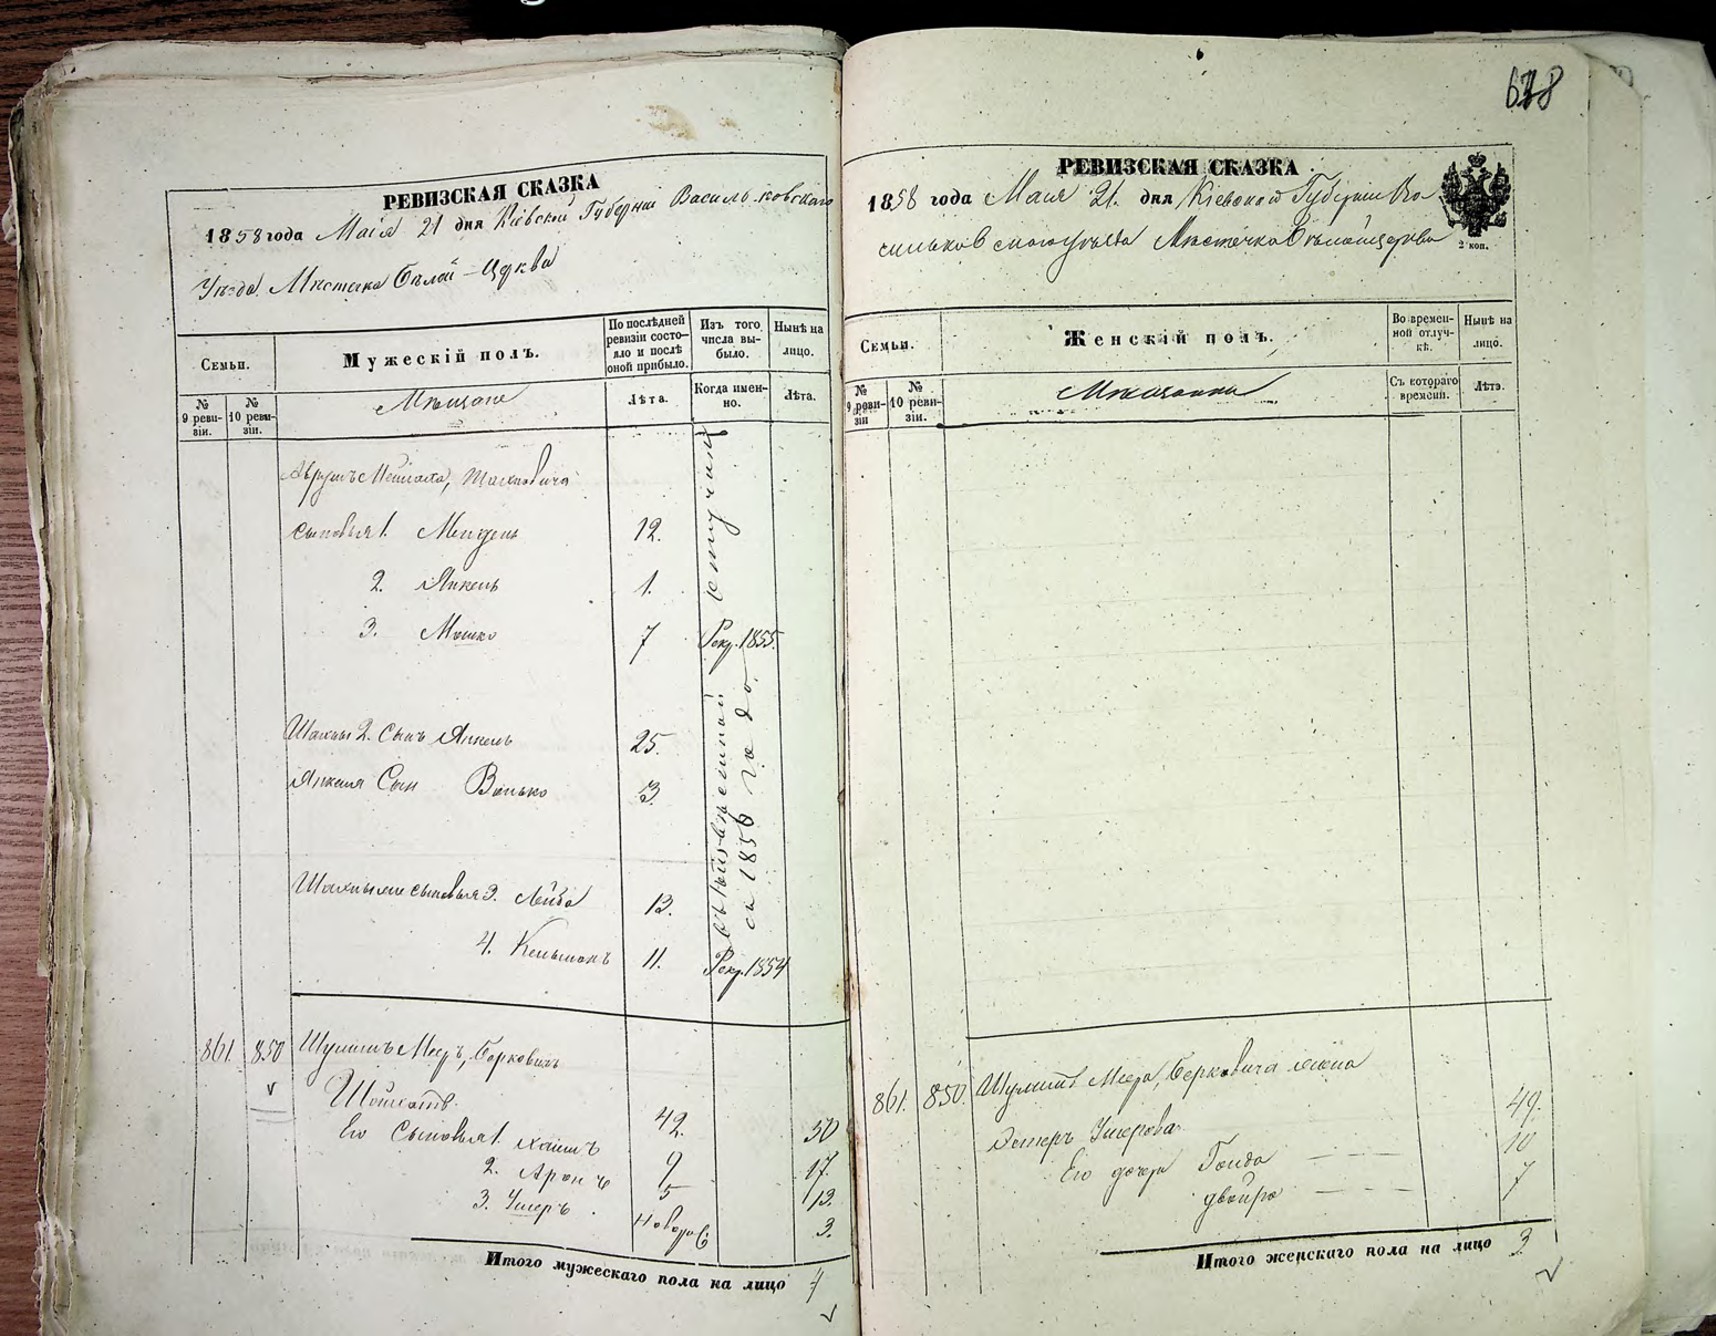 678
РЕВИЗСКАЯ СКАЗКА
1858 года Маія 21 дня Кіевской Губерніи Васильковскаго
Уѣзда Мѣстечка Бѣлой-Церкви
Семьи.
Мужескій полъ.
По послѣдней ревизіи состояло и послѣ оной прибыло.
Изъ того числа выбыло.
Нынѣ на лицо.
№ 9 ревизіи.
№ 10 ревизіи.
Мѣщане
Лѣта.
Когда именно.
Лѣта.
Шахновича
сыновья 1. Мендель 12.
2. Янкель 1.
3. Мошко 7 Рекр. 1855.
Шахны 2. Сынъ Янкель 25.
Янкеля Сын Волько 3.
сыновья 3. Лейба 13.
4. Кельманъ 11. Рекр. 1854
въ
отлучкѣ
съ 1856 года
861. 850 Шулимъ Мееръ, Берковичъ
42. 50
Его Сыновья 1. Хаимъ 9 17.
2. Аронъ 5 13.
3. Ушеръ новорож 3.
Итого мужескаго пола на лицо 4
РЕВИЗСКАЯ СКАЗКА
1858 года Маія 21. дня Кіевской Губерніи Ва-
сильковскаго уѣзда Мѣстечка Бѣлойцеркви
2 коп.
Семьи.
Женскій полъ.
Во временной отлучкѣ.
Нынѣ на лицо.
№ 9 ревизіи
№ 10 ревизіи.
Мѣщанки
Съ котораго времени.
Лѣта.
861. 850. Шулима Меера, Берковича жена
Эстеръ Ушерова 49.
Его дочери Голда 10
двойра 7
Итого женскаго пола на лицо 3